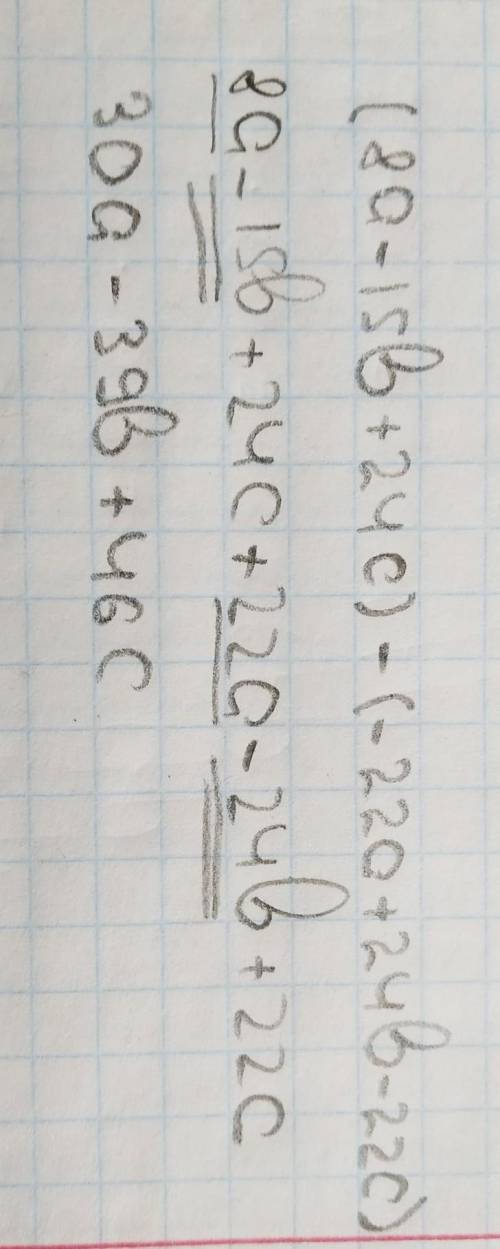 (8a-15b+24c)-(-22a+24b-22c)
8a-15b+24c+22a-24b+22c
30a-39b+46c